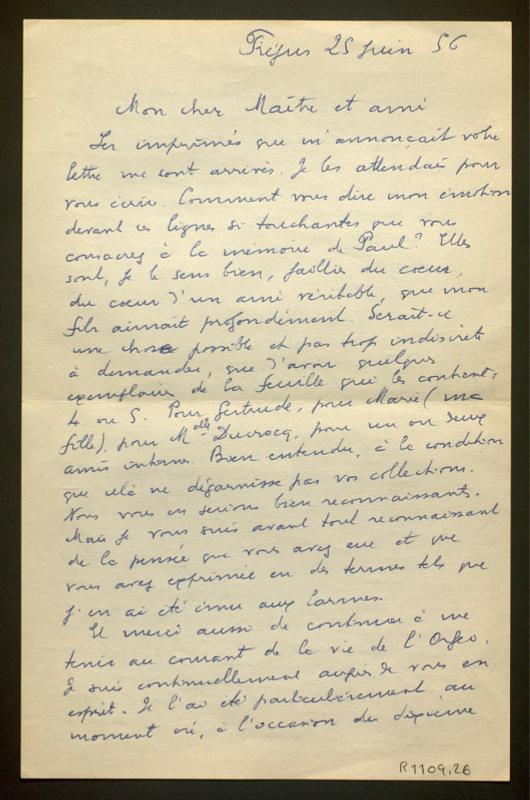 Fréjus 25 juin 56
Mon cher Maître et ami
Les imprimés que m'annonçait votre
lettre me sont arrivés. Je les attendais pour
vous écrire. Comment vous dire mon émotion
devant ces lignes si touchantes que vous
consacrez à la mémoire de Paul ? Elles
sont, je le sens bien, jaillies du cœur,
du cœur d'un ami véritable, que mon
fils aimait profondément. Serait-ce
une chose possible et pas trop indiscrète
à demander, que d'avoir quelques
exemplaires de la feuille qui les contient :
4 ou 5. Pour Gertrude, pour Marie (ma
fille), pour Mdlle Ducrocq, pour un ou deux
amis intimes. Bien entendu, à la condition
que cela ne dégarnisse pas vos collections.
Nous vous en serions bien reconnaissants.
Mais je vous suis avant tout reconnaissant
de la pensée que vous avez eue et que
vous avez exprimée en des termes tels que
j'en ai été ému aux larmes.
Et merci aussi de continuer à me
tenir au courant de la vie de l'Orfeo.
Je suis continuellement auprès de vous en
esprit. Je l'ai été particulièrement au
moment où, à l'occasion du dixième
R1109,26